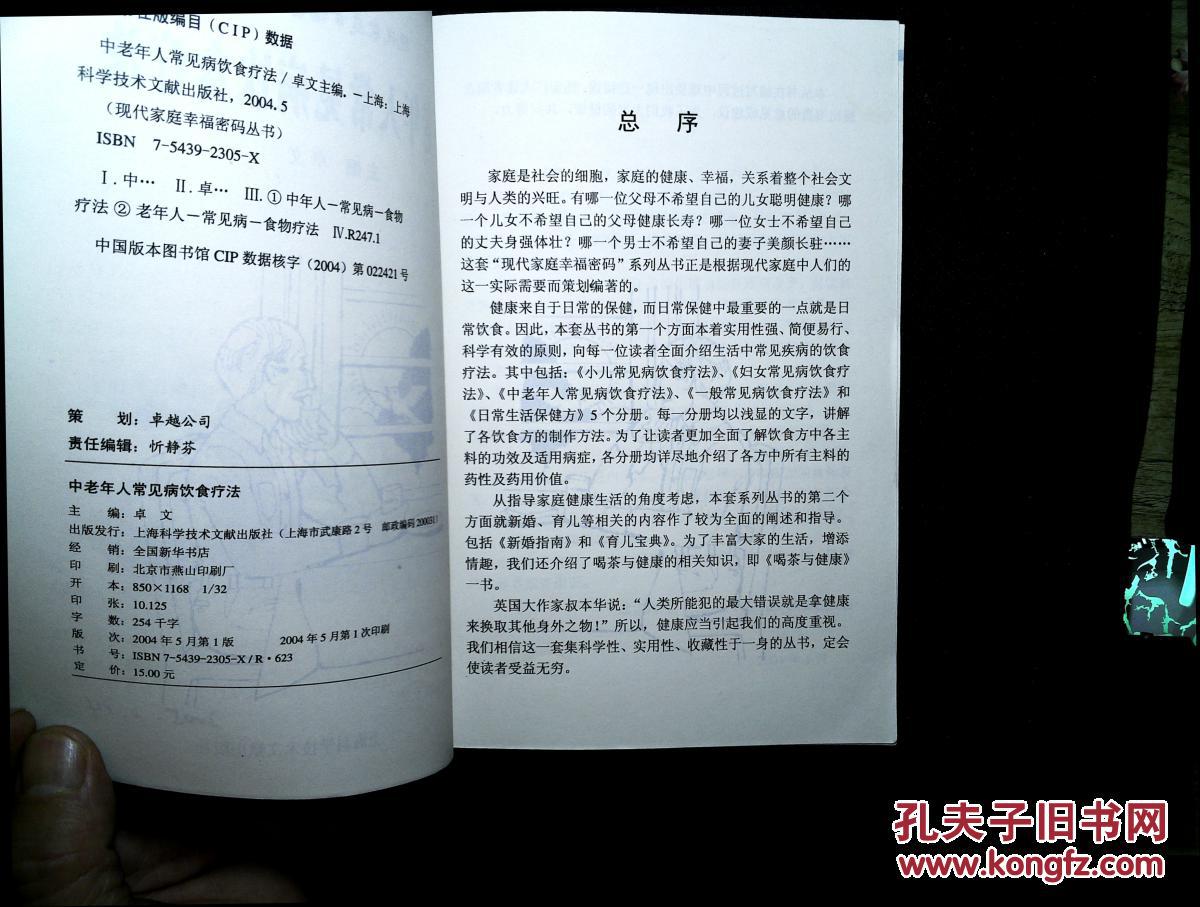 在版编目(CIP)数据
中老年人常见病饮食疗法/卓文主编.—上海:上海
科学技术文献出版社,2004.5
(现代家庭幸福密码丛书)
ISBN 7-5439-2305-X
Ⅰ.中… Ⅱ.卓… Ⅲ.①中年人—常见病—食物
疗法②老年人—常见病—食物疗法 Ⅳ.R247.1
中国版本图书馆CIP数据核字(2004)第022421号
策 划:卓越公司
责任编辑:忻静芬
中老年人常见病饮食疗法
主 编:卓 文
出版发行:上海科学技术文献出版社(上海市武康路2号 邮政编码200031)
经 销:全国新华书店
印 刷:北京市燕山印刷厂
开 本:850×1168 1/32
印 张:10.125
字 数:254千字
版 次:2004年5月第1版 2004年5月第1次印刷
书 号:ISBN 7-5439-2305-X/R·623
定 价:15.00元
总 序
家庭是社会的细胞,家庭的健康、幸福,关系着整个社会文
明与人类的兴旺。有哪一位父母不希望自己的儿女聪明健康?哪
一个儿女不希望自己的父母健康长寿?哪一位女士不希望自己
的丈夫身强体壮?哪一个男士不希望自己的妻子美颜长驻……
这套“现代家庭幸福密码”系列丛书正是根据现代家庭中人们的
这一实际需要而策划编著的。
健康来自于日常的保健,而日常保健中最重要的一点就是日
常饮食。因此,本套丛书的第一个方面本着实用性强、简便易行、
科学有效的原则,向每一位读者全面介绍生活中常见疾病的饮食
疗法。其中包括:《小儿常见病饮食疗法》、《妇女常见病饮食疗
法》、《中老年人常见病饮食疗法》、《一般常见病饮食疗法》和
《日常生活保健方》5个分册。每一分册均以浅显的文字,讲解
了各饮食方的制作方法。为了让读者更加全面了解饮食方中各主
料的功效及适用病症,各分册均详尽地介绍了各方中所有主料的
药性及药用价值。
从指导家庭健康生活的角度考虑,本套系列丛书的第二个
方面就新婚、育儿等相关的内容作了较为全面的阐述和指导。
包括《新婚指南》和《育儿宝典》。为了丰富大家的生活,增添
情趣,我们还介绍了喝茶与健康的相关知识,即《喝茶与健康》
一书。
英国大作家叔本华说:“人类所能犯的最大错误就是拿健康
来换取其他身外之物!”所以,健康应当引起我们的高度重视。
我们相信这一套集科学性、实用性、收藏性于一身的丛书,定会
使读者受益无穷。
孔夫子旧书网
www.kongfz.com